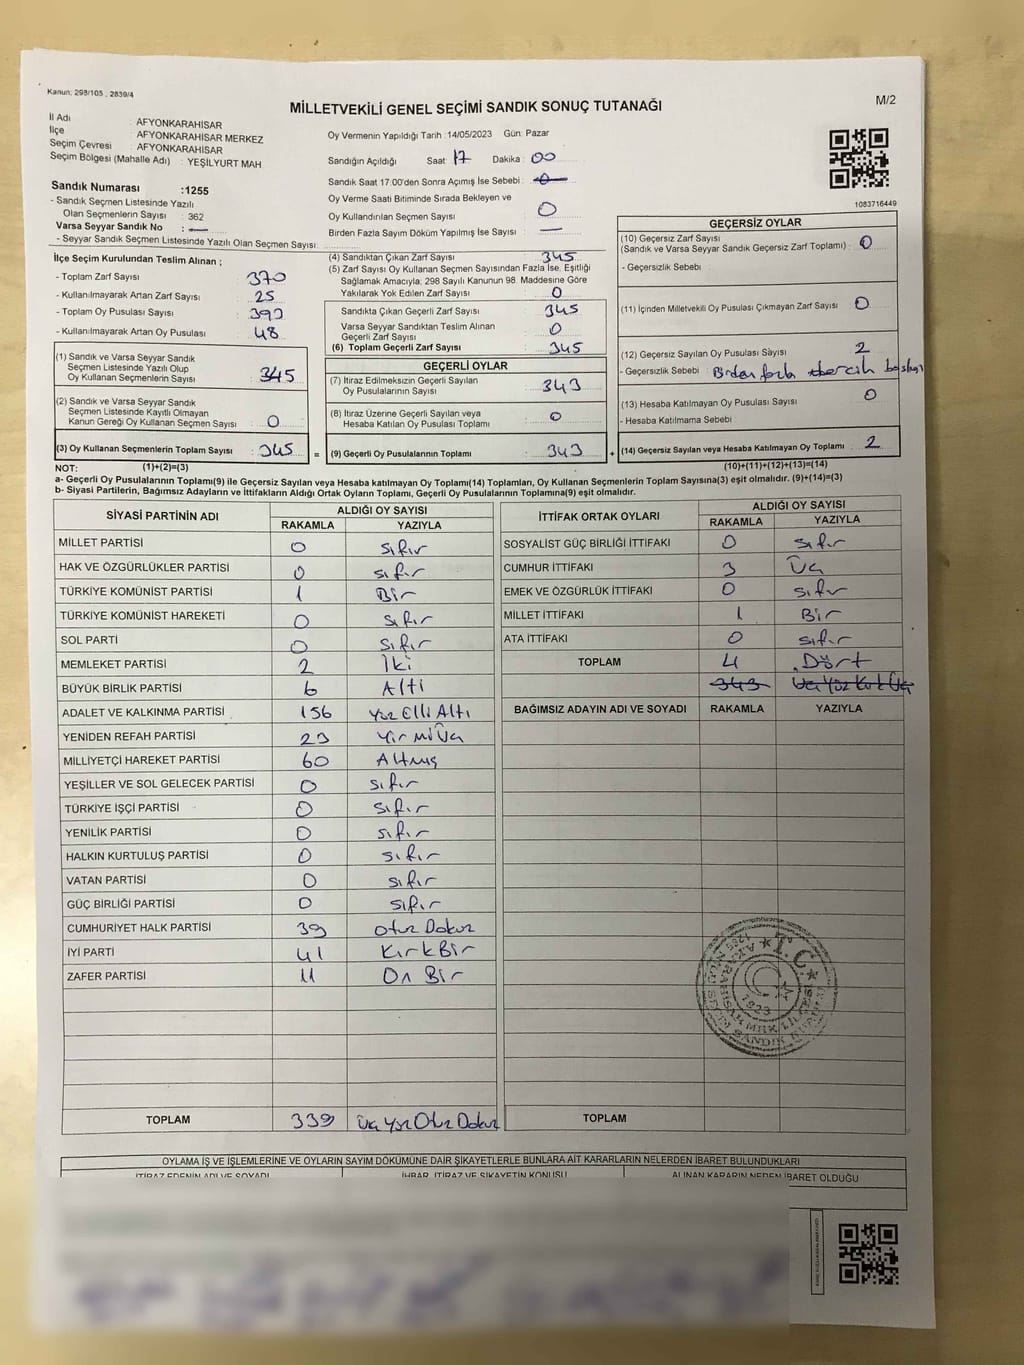 Kanun: 298/105 , 2839/4
MİLLETVEKİLİ GENEL SEÇİMİ SANDIK SONUÇ TUTANAĞI
M/2
İl Adı : AFYONKARAHİSAR
İlçe : AFYONKARAHİSAR MERKEZ
Seçim Çevresi : AFYONKARAHİSAR
Seçim Bölgesi (Mahalle Adı) : YEŞİLYURT MAH
Sandık Numarası :1255
- Sandık Seçmen Listesinde Yazılı
Olan Seçmenlerin Sayısı : 362
Varsa Seyyar Sandık No : —
- Seyyar Sandık Seçmen Listesinde Yazılı Olan Seçmen Sayısı:
Oy Vermenin Yapıldığı Tarih : 14/05/2023 Gün: Pazar
Sandığın Açıldığı Saat: 17 Dakika : 00
Sandık Saat 17:00'den Sonra Açımış İse Sebebi :
Oy Verme Saati Bitiminde Sırada Bekleyen ve
Oy Kullandırılan Seçmen Sayısı : 0
Birden Fazla Sayım Döküm Yapılmış İse Sayısı : —
1083716449
İlçe Seçim Kurulundan Teslim Alınan ;
- Toplam Zarf Sayısı : 370
- Kullanılmayarak Artan Zarf Sayısı : 25
- Toplam Oy Pusulası Sayısı :
- Kullanılmayarak Artan Oy Pusulası : 48
(1) Sandık ve Varsa Seyyar Sandık
Seçmen Listesinde Yazılı Olup
Oy Kullanan Seçmenlerin Sayısı : 345
(2) Sandık ve Varsa Seyyar Sandık
Seçmen Listesinde Kayıtlı Olmayan
Kanun Gereği Oy Kullanan Seçmen Sayısı : 0
(3) Oy Kullanan Seçmenlerin Toplam Sayısı : 345
(4) Sandıktan Çıkan Zarf Sayısı : 345
(5) Zarf Sayısı Oy Kullanan Seçmen Sayısından Fazla İse, Eşitliği
Sağlamak Amacıyla; 298 Sayılı Kanunun 98. Maddesine Göre
Yakılarak Yok Edilen Zarf Sayısı : 0
Sandıkta Çıkan Geçerli Zarf Sayısı : 345
Varsa Seyyar Sandıktan Teslim Alınan
Geçerli Zarf Sayısı : 0
(6) Toplam Geçerli Zarf Sayısı : 345
GEÇERLİ OYLAR
(7) İtiraz Edilmeksizin Geçerli Sayılan
Oy Pusulalarının Sayısı : 343
(8) İtiraz Üzerine Geçerli Sayılan veya
Hesaba Katılan Oy Pusulası Toplamı : 0
= (9) Geçerli Oy Pusulalarının Toplamı : 343 +
GEÇERSİZ OYLAR
(10) Geçersiz Zarf Sayısı
(Sandık ve Varsa Seyyar Sandık Geçersiz Zarf Toplamı) : 0
- Geçersizlik Sebebi :
(11) İçinden Milletvekili Oy Pusulası Çıkmayan Zarf Sayısı : 0
(12) Geçersiz Sayılan Oy Pusulası Sayısı : 2
- Geçersizlik Sebebi : Birden fazla tercih
(13) Hesaba Katılmayan Oy Pusulası Sayısı : 0
- Hesaba Katılmama Sebebi :
(14) Geçersiz Sayılan veya Hesaba Katılmayan Oy Toplamı : 2
NOT: (1)+(2)=(3) (10)+(11)+(12)+(13)=(14)
a- Geçerli Oy Pusulalarının Toplamı(9) ile Geçersiz Sayılan veya Hesaba katılmayan Oy Toplamı(14) Toplamları, Oy Kullanan Seçmenlerin Toplam Sayısına(3) eşit olmalıdır. (9)+(14)=(3)
b- Siyasi Partilerin, Bağımsız Adayların ve İttifakların Aldığı Ortak Oyların Toplamı, Geçerli Oy Pusulalarının Toplamına(9) eşit olmalıdır.
SİYASİ PARTİNİN ADI ALDIĞI OY SAYISI
RAKAMLA YAZIYLA
MİLLET PARTİSİ 0 Sıfır
HAK VE ÖZGÜRLÜKLER PARTİSİ 0 Sıfır
TÜRKİYE KOMÜNİST PARTİSİ 1 Bir
TÜRKİYE KOMÜNİST HAREKETİ 0 Sıfır
SOL PARTİ 0 Sıfır
MEMLEKET PARTİSİ 2 İki
BÜYÜK BİRLİK PARTİSİ 6 Altı
ADALET VE KALKINMA PARTİSİ 156 Yüz Elli Altı
YENİDEN REFAH PARTİSİ 23 Yirmi Üç
MİLLİYETÇİ HAREKET PARTİSİ 60 Altmış
YEŞİLLER VE SOL GELECEK PARTİSİ 0 Sıfır
TÜRKİYE İŞÇİ PARTİSİ 0 Sıfır
YENİLİK PARTİSİ 0 Sıfır
HALKIN KURTULUŞ PARTİSİ 0 Sıfır
VATAN PARTİSİ 0 Sıfır
GÜÇ BİRLİĞİ PARTİSİ 0 Sıfır
CUMHURİYET HALK PARTİSİ 39 Otuz Dokuz
İYİ PARTİ 41 Kırk Bir
ZAFER PARTİSİ 11 On Bir
TOPLAM 339 Üç Yüz Otuz Dokuz
İTTİFAK ORTAK OYLARI ALDIĞI OY SAYISI
RAKAMLA YAZIYLA
SOSYALİST GÜÇ BİRLİĞİ İTTİFAKI 0 Sıfır
CUMHUR İTTİFAKI 3 Üç
EMEK VE ÖZGÜRLÜK İTTİFAKI 0 Sıfır
MİLLET İTTİFAKI 1 Bir
ATA İTTİFAKI 0 Sıfır
TOPLAM 4 Dört
343 Üç Yüz Kırk Üç
BAĞIMSIZ ADAYIN ADI VE SOYADI RAKAMLA YAZIYLA
T.C.
1923
TOPLAM
OYLAMA İŞ VE İŞLEMLERİNE VE OYLARIN SAYIM DÖKÜMÜNE DAİR ŞİKAYETLERLE BUNLARA AİT KARARLARIN NELERDEN İBARET BULUNDUKLARI
İTİRAZ EDENİN ADI VE SOYADI İHBAR, İTİRAZ VE ŞİKAYETİN KONUSU ALINAN KARARIN NEDEN İBARET OLDUĞU